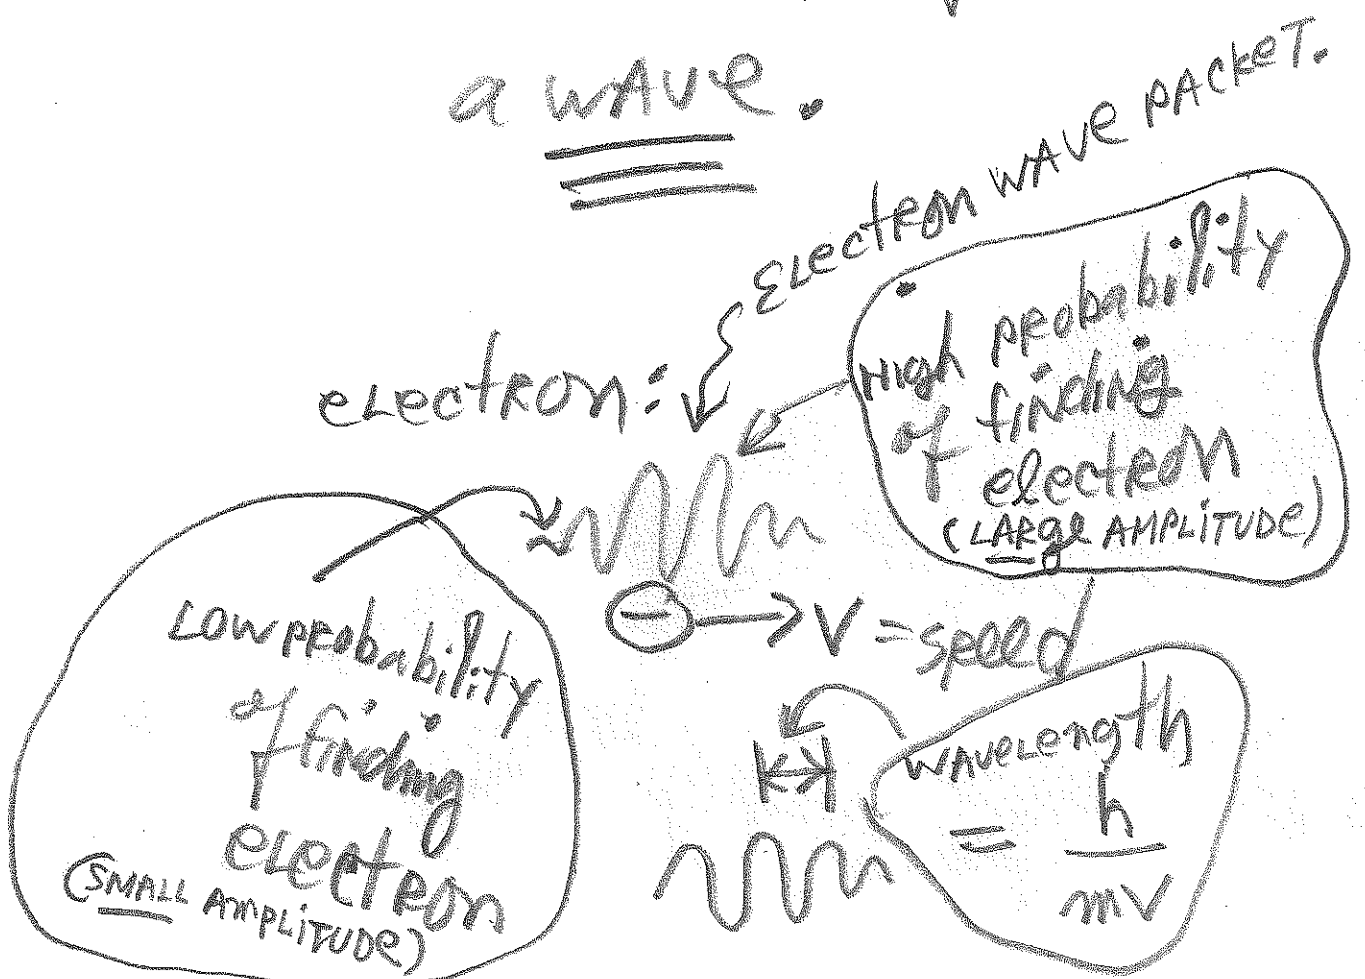 a wave.
Electron wave packet.
electron:
High probability
of finding
electron
(Large amplitude)
Low probability
of finding
electron
(small amplitude)
−
v = speed
wavelength
= h
mv